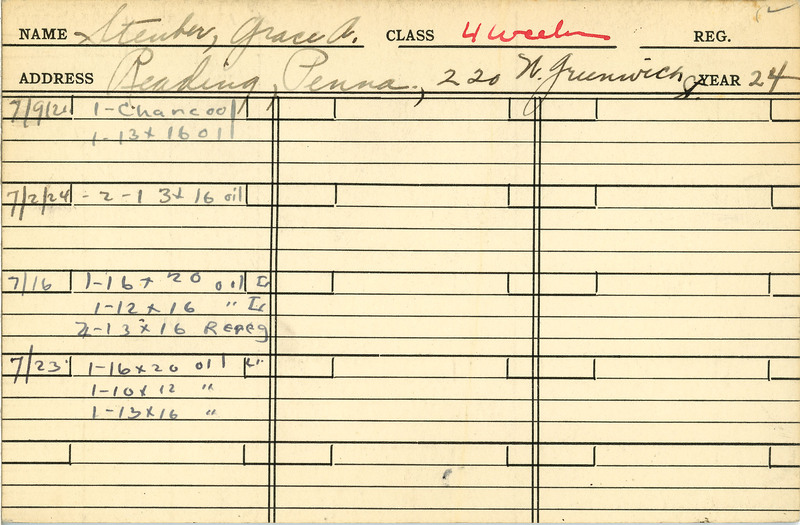 NAME Steuber, Grace A. CLASS 4 weeks REG.
ADDRESS Reading, Penna., 220 N. Greenwich St. YEAR 24
7/9/24 1-Charcoal
1-13x16 oil
7/2/24 - 2 - 13x16 oil
7/16 1-16x20 oil
1-12x16 "
2-13x16
7/23 1-16x20 oil
1-10x12 "
1-13x16 "